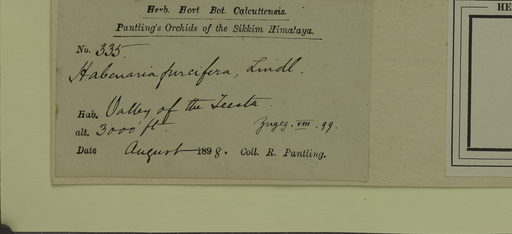 Herb. Hort Bot. Calcuttensis.
Pantling's Orchids of the Sikkim Himalaya.
No. 335.
Habenaria furcifera, Lindl.
Hab. Valley of the Teesta
alt. 3000 ft. Zugeg. VIII. 99.
Date August 1898. Coll. R. Pantling.
HE